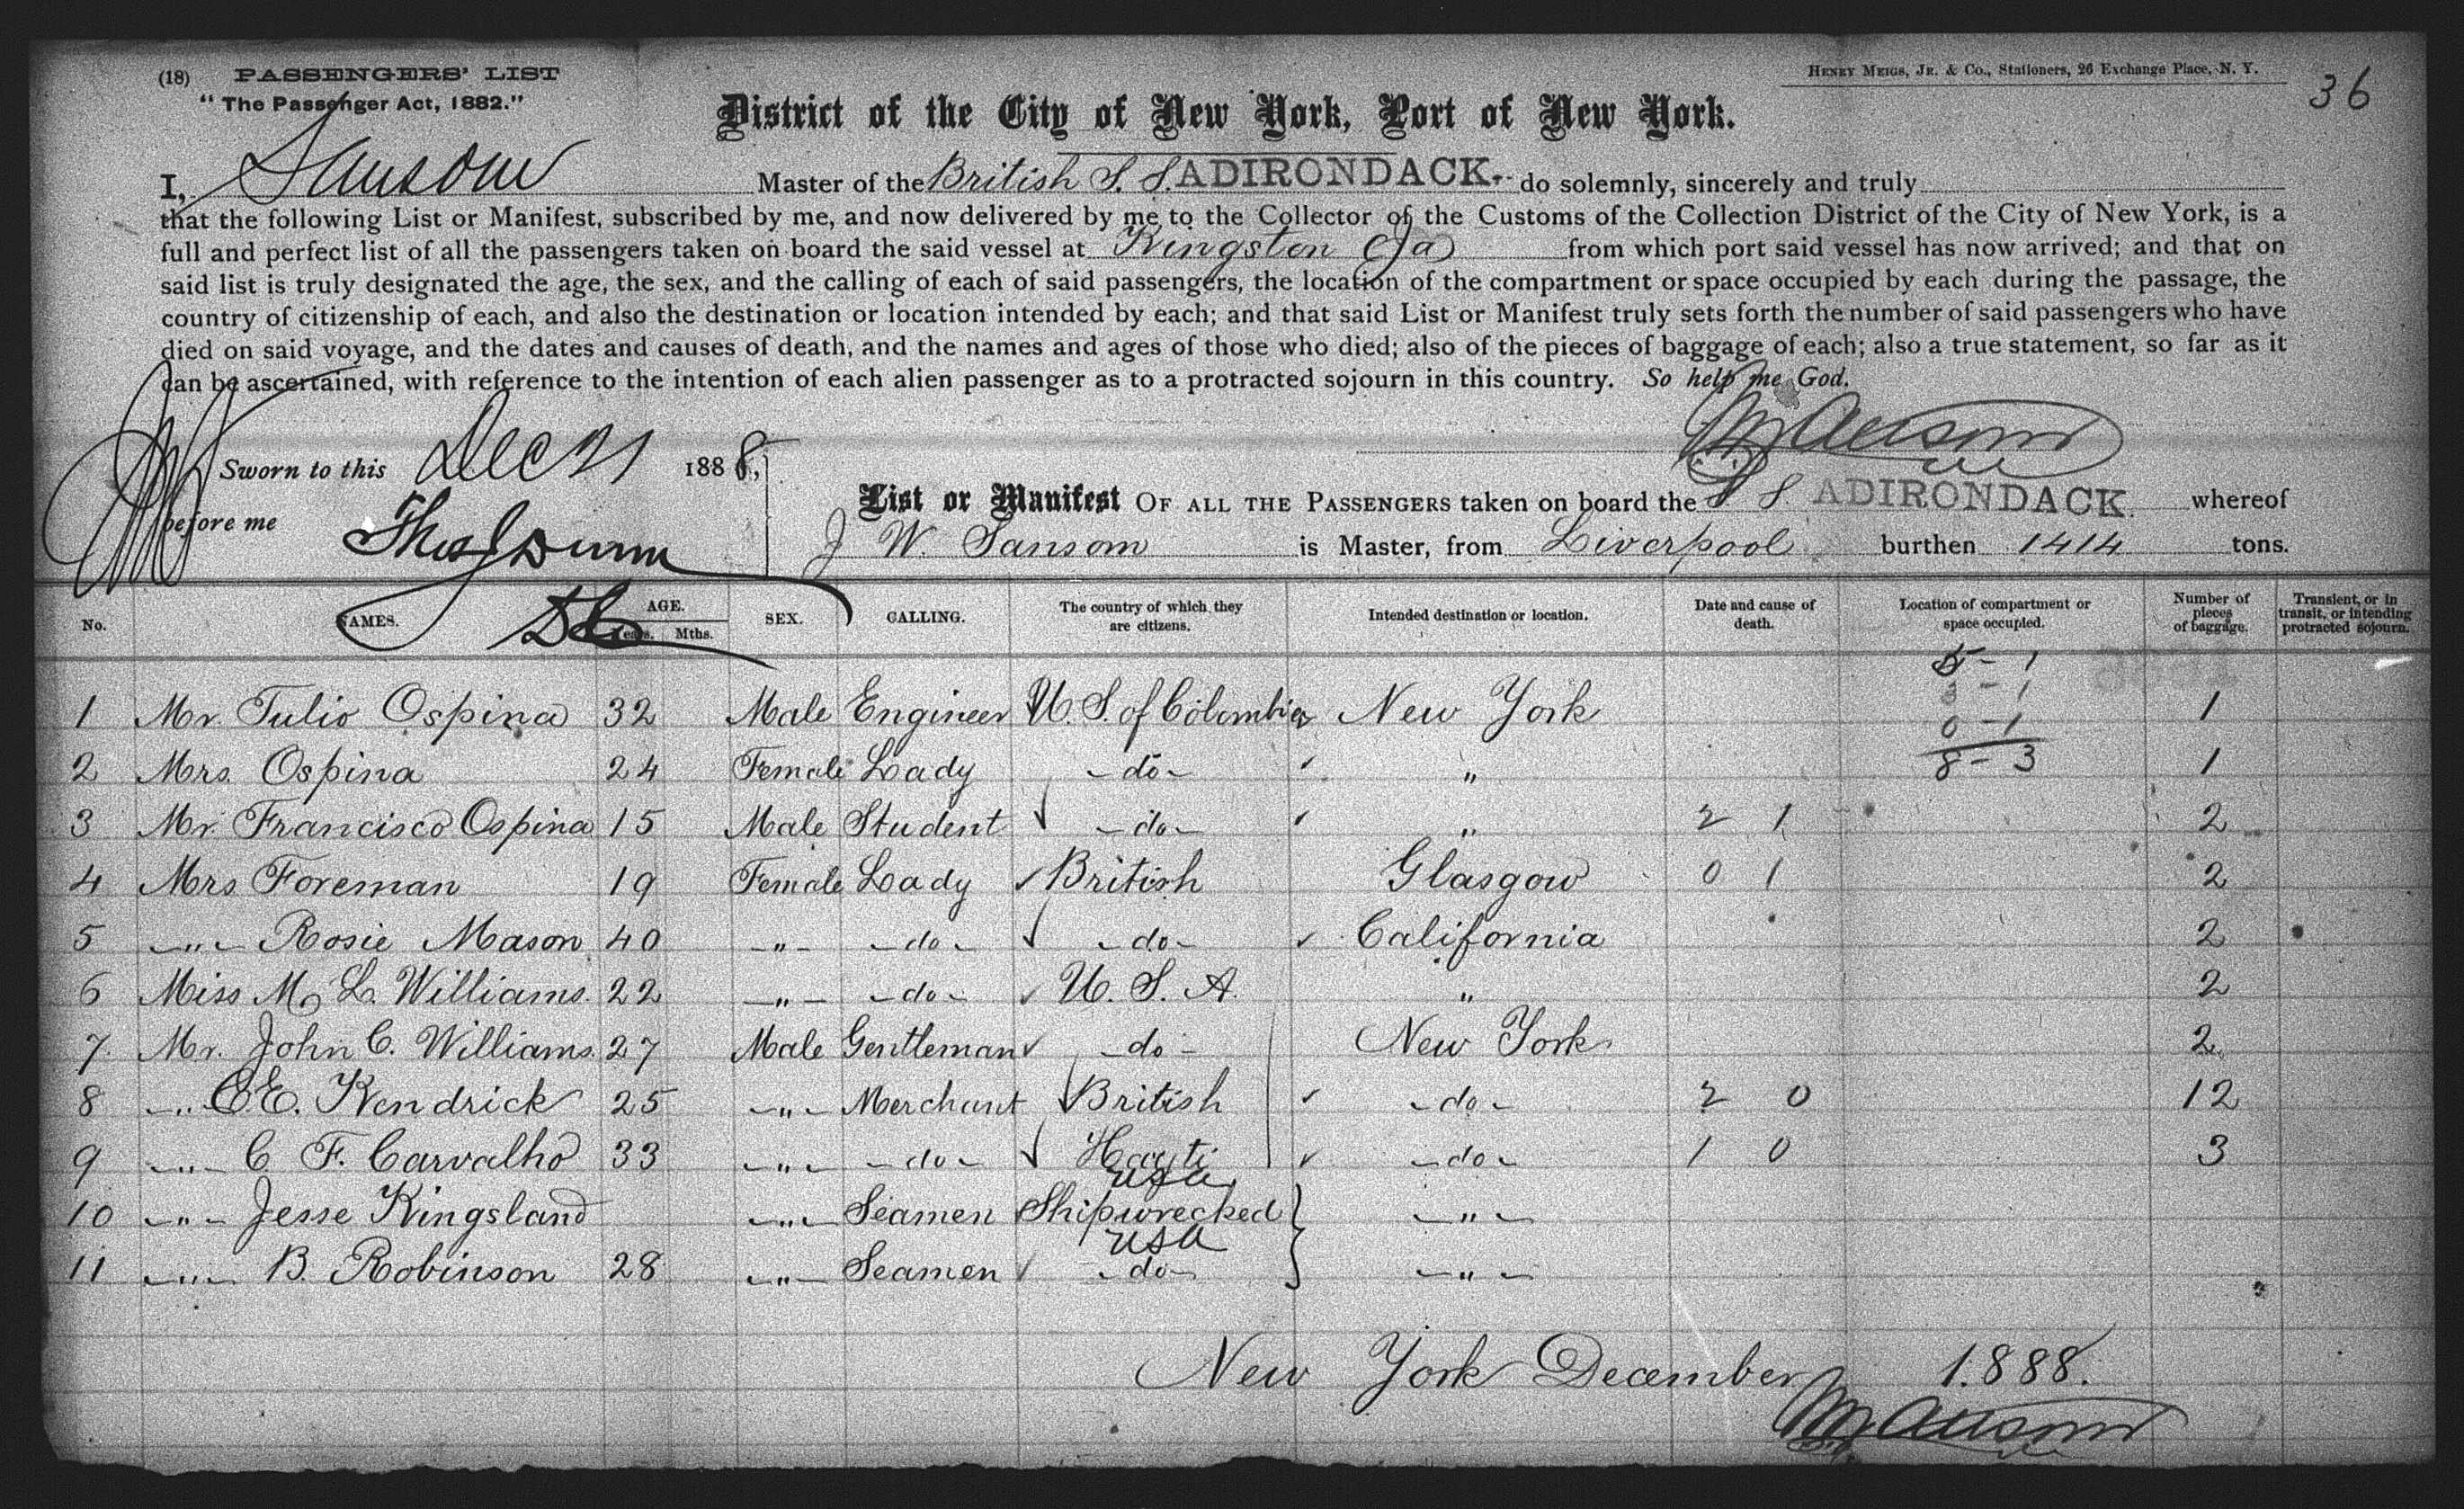 (18) PASSENGERS' LIST
HENRY MEIGS, JR. & CO., Stationers, 26 Exchange Place, N. Y.
36
"The Passenger Act, 1882."
District of the City of New York, Port of New York.
I, Sansom Master of the British S. S. ADIRONDACK. do solemnly, sincerely and truly
that the following List or Manifest, subscribed by me, and now delivered by me to the Collector of the Customs of the Collection District of the City of New York, is a
full and perfect list of all the passengers taken on board the said vessel at Kingston Ja from which port said vessel has now arrived; and that on
said list is truly designated the age, the sex, and the calling of each of said passengers, the location of the compartment or space occupied by each during the passage, the
country of citizenship of each, and also the destination or location intended by each; and that said List or Manifest truly sets forth the number of said passengers who have
died on said voyage, and the dates and causes of death, and the names and ages of those who died; also of the pieces of baggage of each; also a true statement, so far as it
can be ascertained, with reference to the intention of each alien passenger as to a protracted sojourn in this country. So help me God.
Sansom
Sworn to this Dec 21 1888,
before me Thos J Dunn
List or Manifest OF ALL THE PASSENGERS taken on board the S S. ADIRONDACK. whereof
J W. Sansom is Master, from Liverpool burthen 1414 tons.
No. NAMES. AGE. Years. Mths. SEX. CALLING. The country of which they are citizens. Intended destination or location. Date and cause of death. Location of compartment or space occupied. Number of pieces of baggage. Transient, or in transit, or intending protracted sojourn.
5 - 1
3 - 1
1 Mr. Tulio Ospina 32 Male Engineer U. S. of Colombia New York 1
0 - 1
2 Mrs. Ospina 24 Female Lady - do - " 8 - 3 1
3 Mr. Francisco Ospina 15 Male Student - do - " 2 1 2
4 Mrs Foreman 19 Female Lady British Glasgow 0 1 2
5 - " - Rosie Mason 40 - " - - do - - do - California 2
6 Miss M. L. Williams. 22 - " - - do - U. S. A. " 2
7. Mr. John C. Williams. 27 Male Gentleman - do - New York 2
8 - " - C. E. Kendrick 25 - " - Merchant British - do - 2 0 12
9 - " - C. F. Carvalho 33 - " - - do - Hayti - do - 1 0 3
USA
10 - " - Jesse Kingsland - " - Seamen Shipwrecked - " -
USA
11 - " - B. Robinson 28 - " - Seamen - do - - " -
New York December 1.888.
Sansom